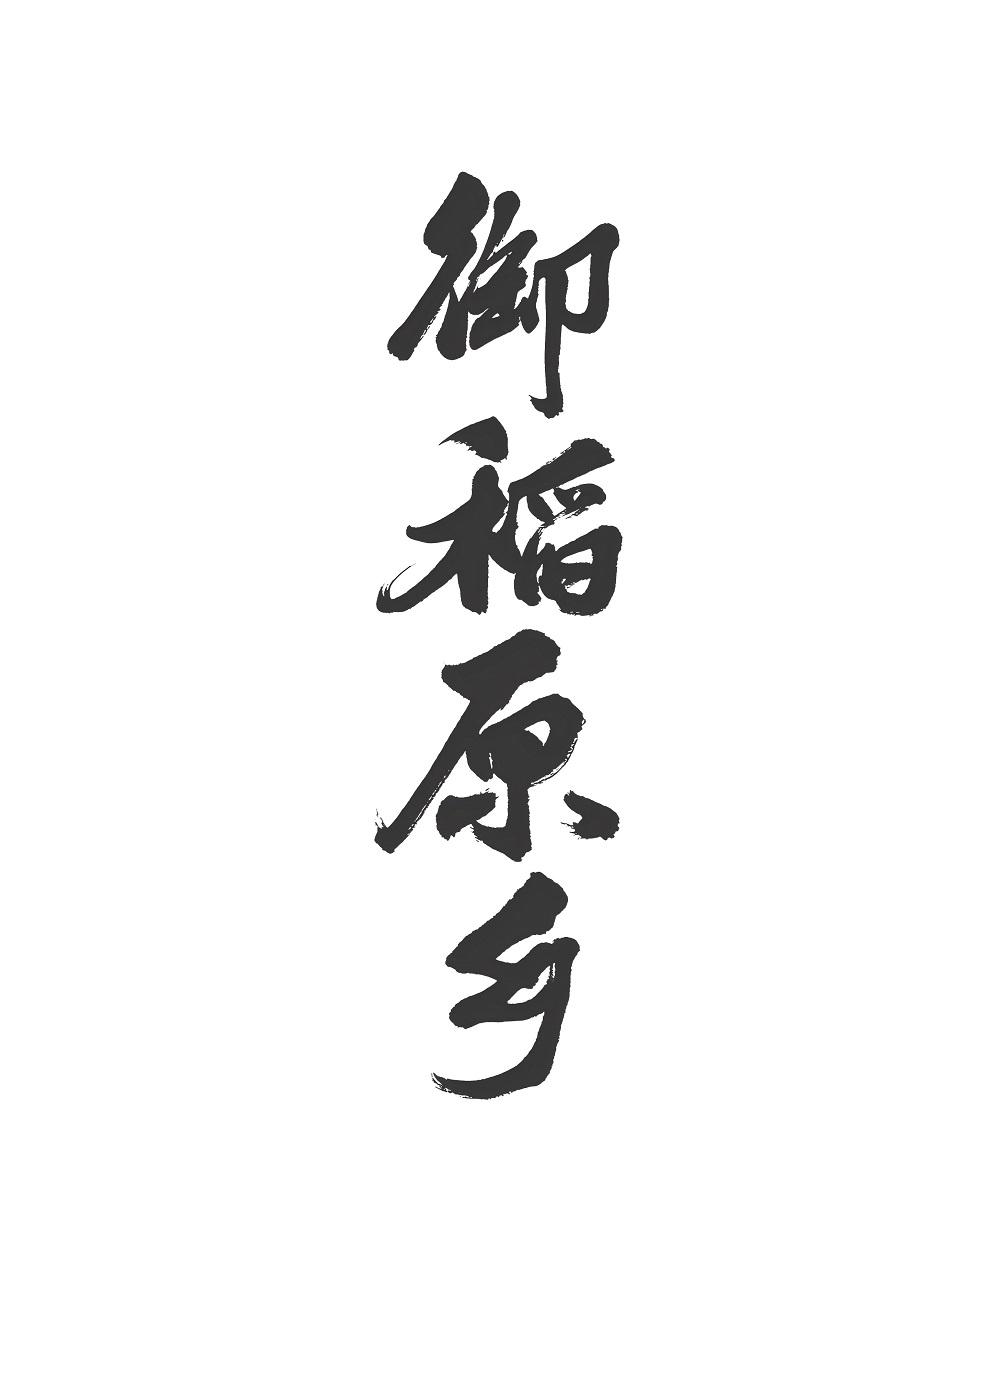 御稻原乡